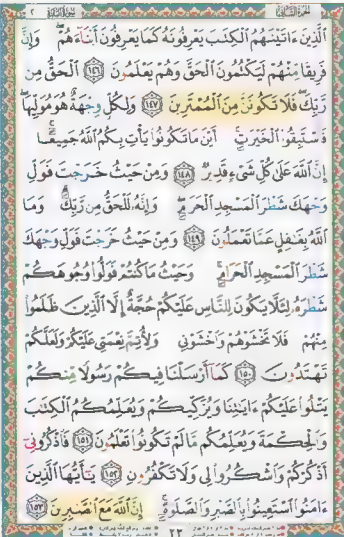 الجزء الثاني سورة البقرة ٢
ٱلَّذِينَ ءَاتَيْنَٰهُمُ ٱلْكِتَٰبَ يَعْرِفُونَهُۥ كَمَا يَعْرِفُونَ أَبْنَآءَهُمْ ۖ وَإِنَّ
فَرِيقًا مِّنْهُمْ لَيَكْتُمُونَ ٱلْحَقَّ وَهُمْ يَعْلَمُونَ ١٤٦ ٱلْحَقُّ مِن
رَّبِّكَ ۖ فَلَا تَكُونَنَّ مِنَ ٱلْمُمْتَرِينَ ١٤٧ وَلِكُلٍّ وِجْهَةٌ هُوَ مُوَلِّيهَا ۖ
فَٱسْتَبِقُوا۟ ٱلْخَيْرَٰتِ ۚ أَيْنَ مَا تَكُونُوا۟ يَأْتِ بِكُمُ ٱللَّهُ جَمِيعًا ۚ
إِنَّ ٱللَّهَ عَلَىٰ كُلِّ شَىْءٍ قَدِيرٌ ١٤٨ وَمِنْ حَيْثُ خَرَجْتَ فَوَلِّ
وَجْهَكَ شَطْرَ ٱلْمَسْجِدِ ٱلْحَرَامِ ۖ وَإِنَّهُۥ لَلْحَقُّ مِن رَّبِّكَ ۗ وَمَا
ٱللَّهُ بِغَٰفِلٍ عَمَّا تَعْمَلُونَ ١٤٩ وَمِنْ حَيْثُ خَرَجْتَ فَوَلِّ وَجْهَكَ
شَطْرَ ٱلْمَسْجِدِ ٱلْحَرَامِ ۚ وَحَيْثُ مَا كُنتُمْ فَوَلُّوا۟ وُجُوهَكُمْ
شَطْرَهُۥ لِئَلَّا يَكُونَ لِلنَّاسِ عَلَيْكُمْ حُجَّةٌ إِلَّا ٱلَّذِينَ ظَلَمُوا۟
مِنْهُمْ فَلَا تَخْشَوْهُمْ وَٱخْشَوْنِى وَلِأُتِمَّ نِعْمَتِى عَلَيْكُمْ وَلَعَلَّكُمْ
تَهْتَدُونَ ١٥٠ كَمَآ أَرْسَلْنَا فِيكُمْ رَسُولًا مِّنكُمْ
يَتْلُوا۟ عَلَيْكُمْ ءَايَٰتِنَا وَيُزَكِّيكُمْ وَيُعَلِّمُكُمُ ٱلْكِتَٰبَ
وَٱلْحِكْمَةَ وَيُعَلِّمُكُم مَّا لَمْ تَكُونُوا۟ تَعْلَمُونَ ١٥١ فَٱذْكُرُونِىٓ
أَذْكُرْكُمْ وَٱشْكُرُوا۟ لِى وَلَا تَكْفُرُونِ ١٥٢ يَٰٓأَيُّهَا ٱلَّذِينَ
ءَامَنُوا۟ ٱسْتَعِينُوا۟ بِٱلصَّبْرِ وَٱلصَّلَوٰةِ ۚ إِنَّ ٱللَّهَ مَعَ ٱلصَّٰبِرِينَ ١٥٣
٢٣